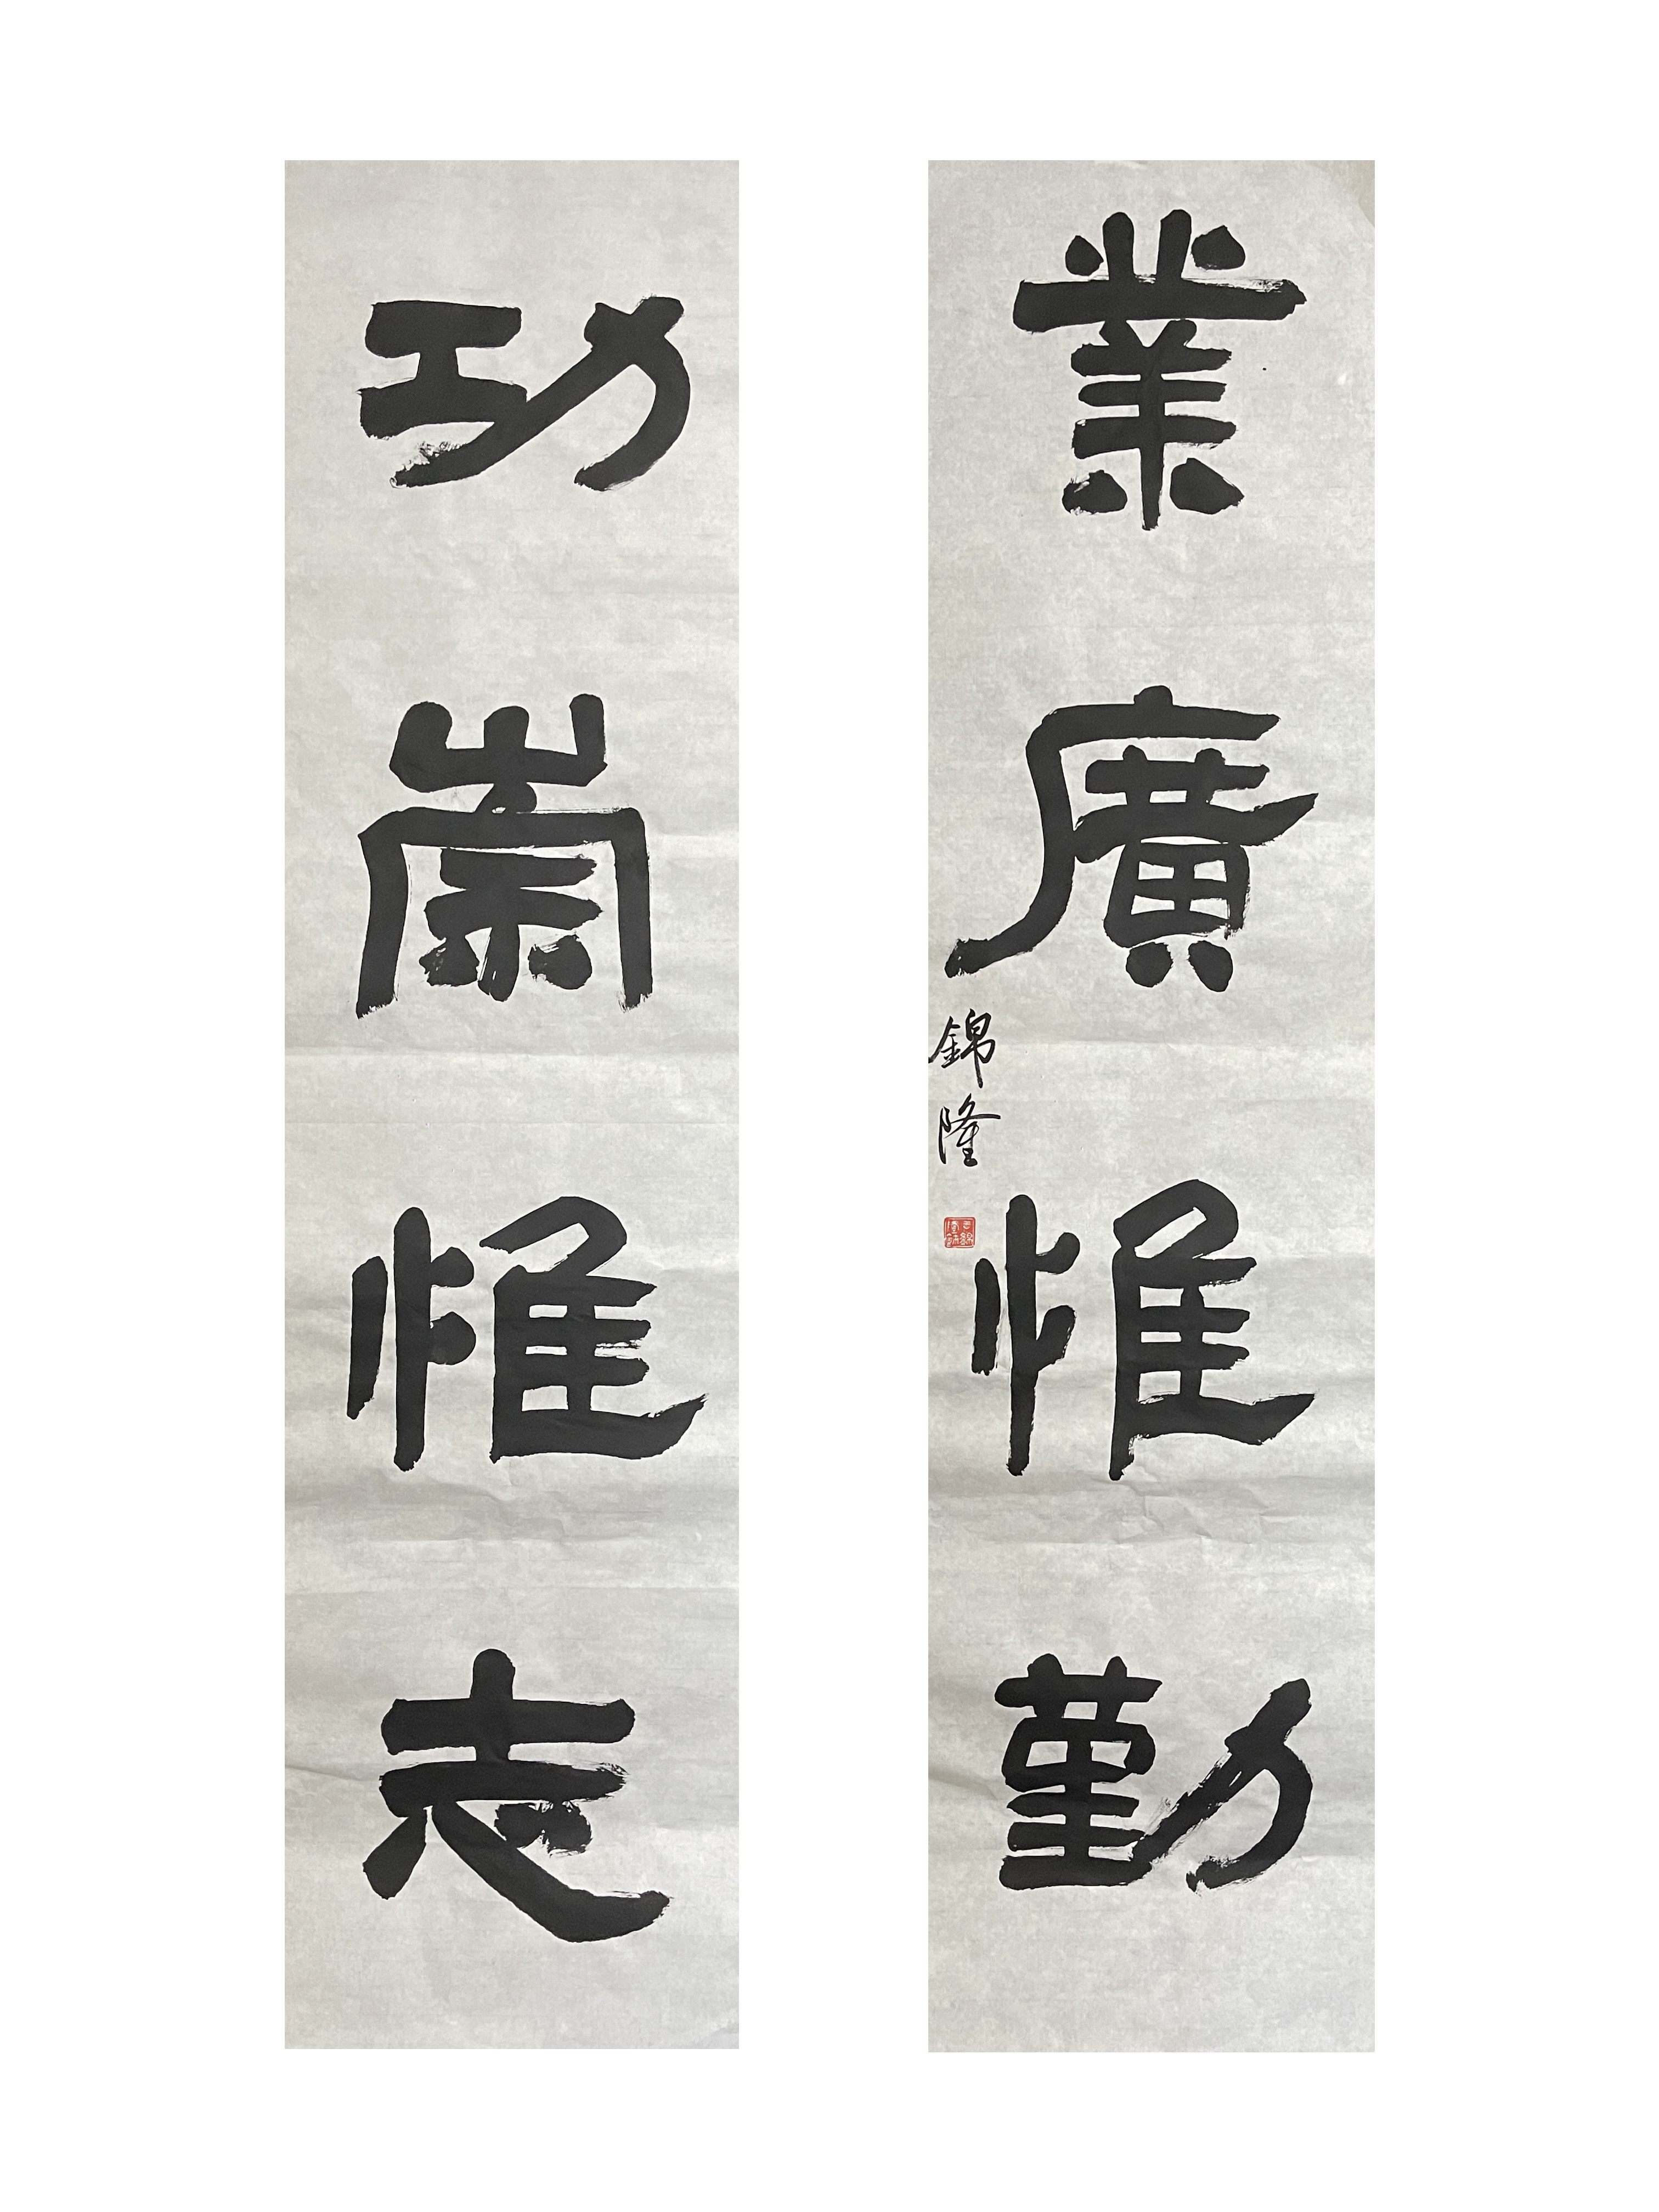 業廣惟勤
錦隆
功崇惟志